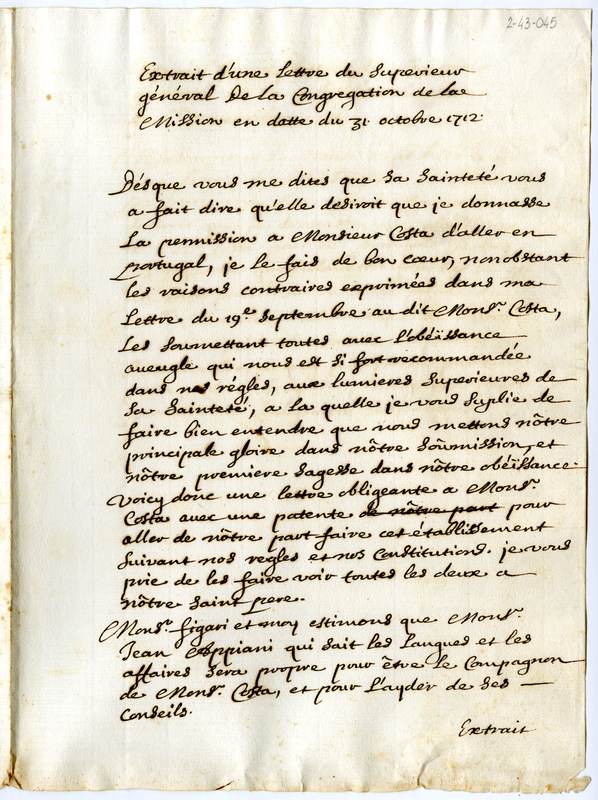 2-43-045
Extrait d'une Lettre du Superieur
général De la Congregation de la
Mission en datte du 31. octobre 1712.
Désque vous me dites que sa Sainteté vous
a fait dire qu'elle desiroit que je donnasse
La permission a Monsieur Costa d'aller en
portugal, je le fais de bon cœur, nonobstant
les raisons contraires exprimées dans ma
Lettre du 19e Septembre au dit Monsr. Costa,
Les soumettant toutes avec L'obéissance
aveugle qui nous est si fort recommandée
dans nos régles, aux lumieres superieures de
sa Sainteté, a la quelle je vous suplie de
faire bien entendre que nous mettons nôtre
principale gloire dans nôtre soûmission, et
nôtre premiere sagesse dans nôtre obéïssance.
Voicy donc une lettre obligeante a Monsr.
Costa avec une patente de nôtre part pour
aller de nôtre part faire cet établissement
suivant nos regles et nos Constitutions. je vous
prie de les faire voir toutes les deux a
nôtre saint pere.
Monsr. figari et moy estimons que Monsr.
Jean Appiani qui sait les Langues et les
affaires sera propre pour être le Compagnon
de Monsr. Costa, et pour L'ayder de ses
Conseils.
Extrait